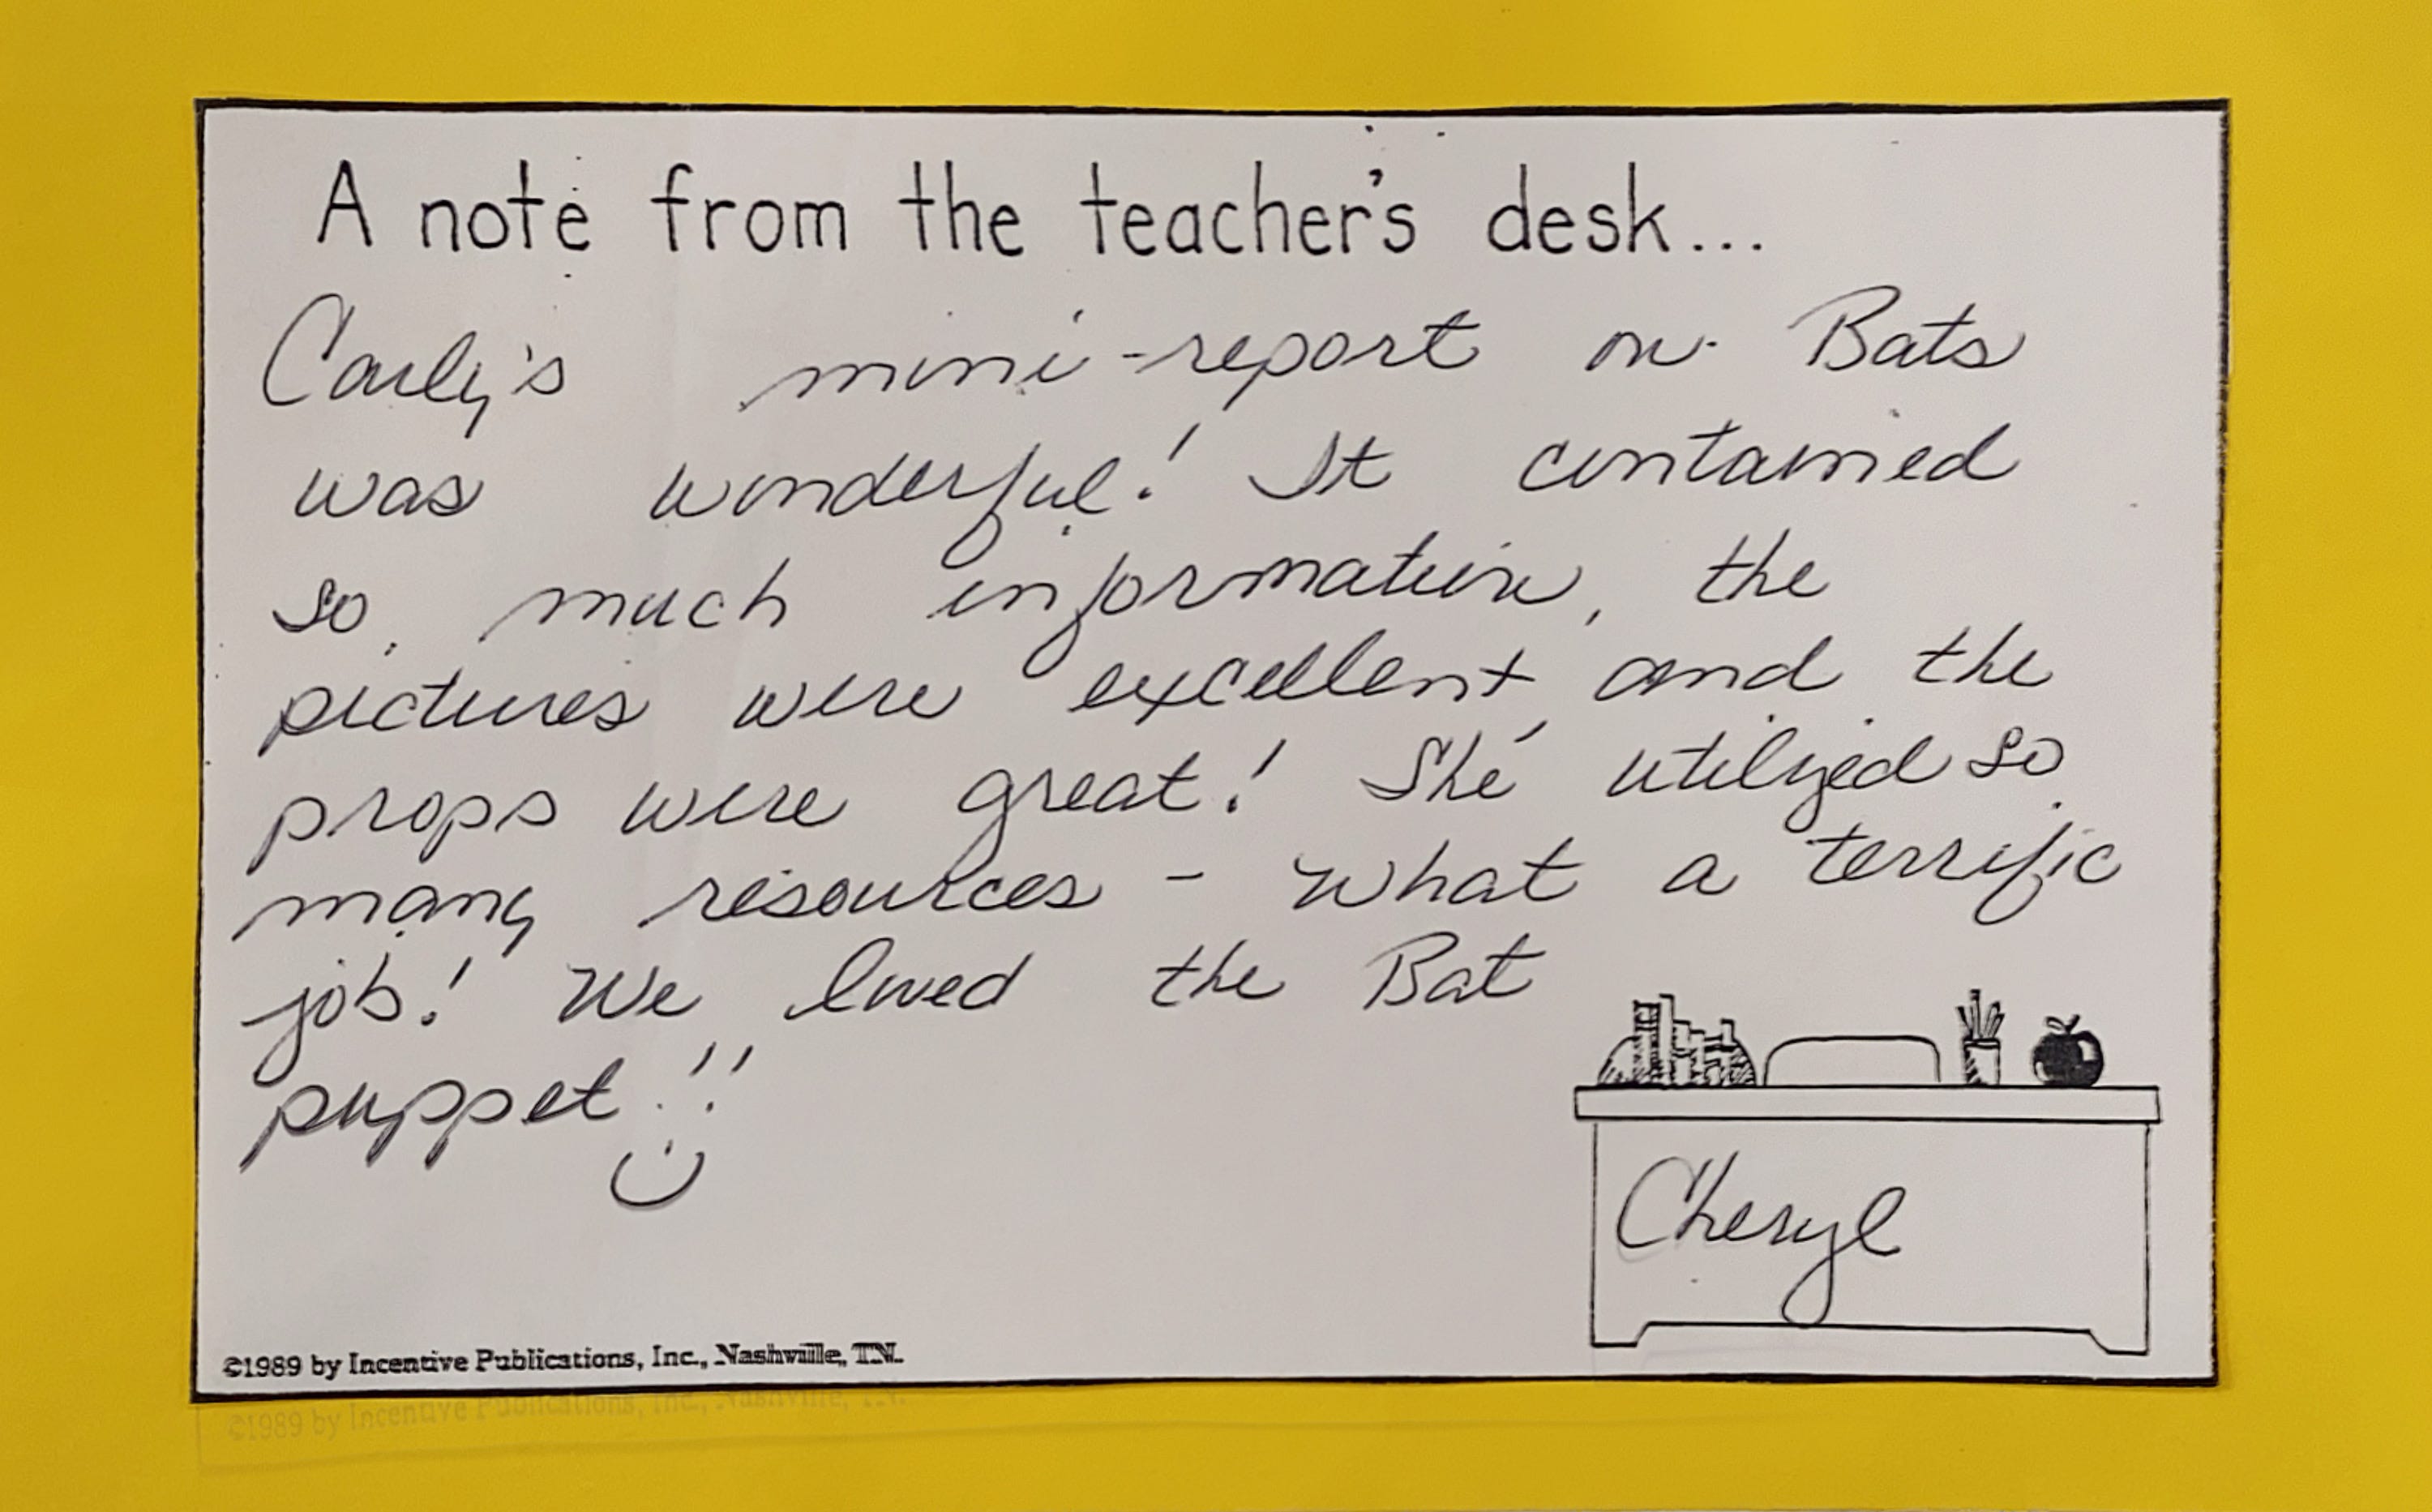 A note from the teacher's desk...
Carly's mini-report on Bats
was wonderful! It contained
so much information, the
pictures were excellent, and the
props were great! She utilized so
many resources - what a terrific
job! We loved the Bat
puppet!!
Cheryl
©1989 by Incentive Publications, Inc., Nashville, TN.
©1989 by Incentive Publications, Inc., Nashville, TN.